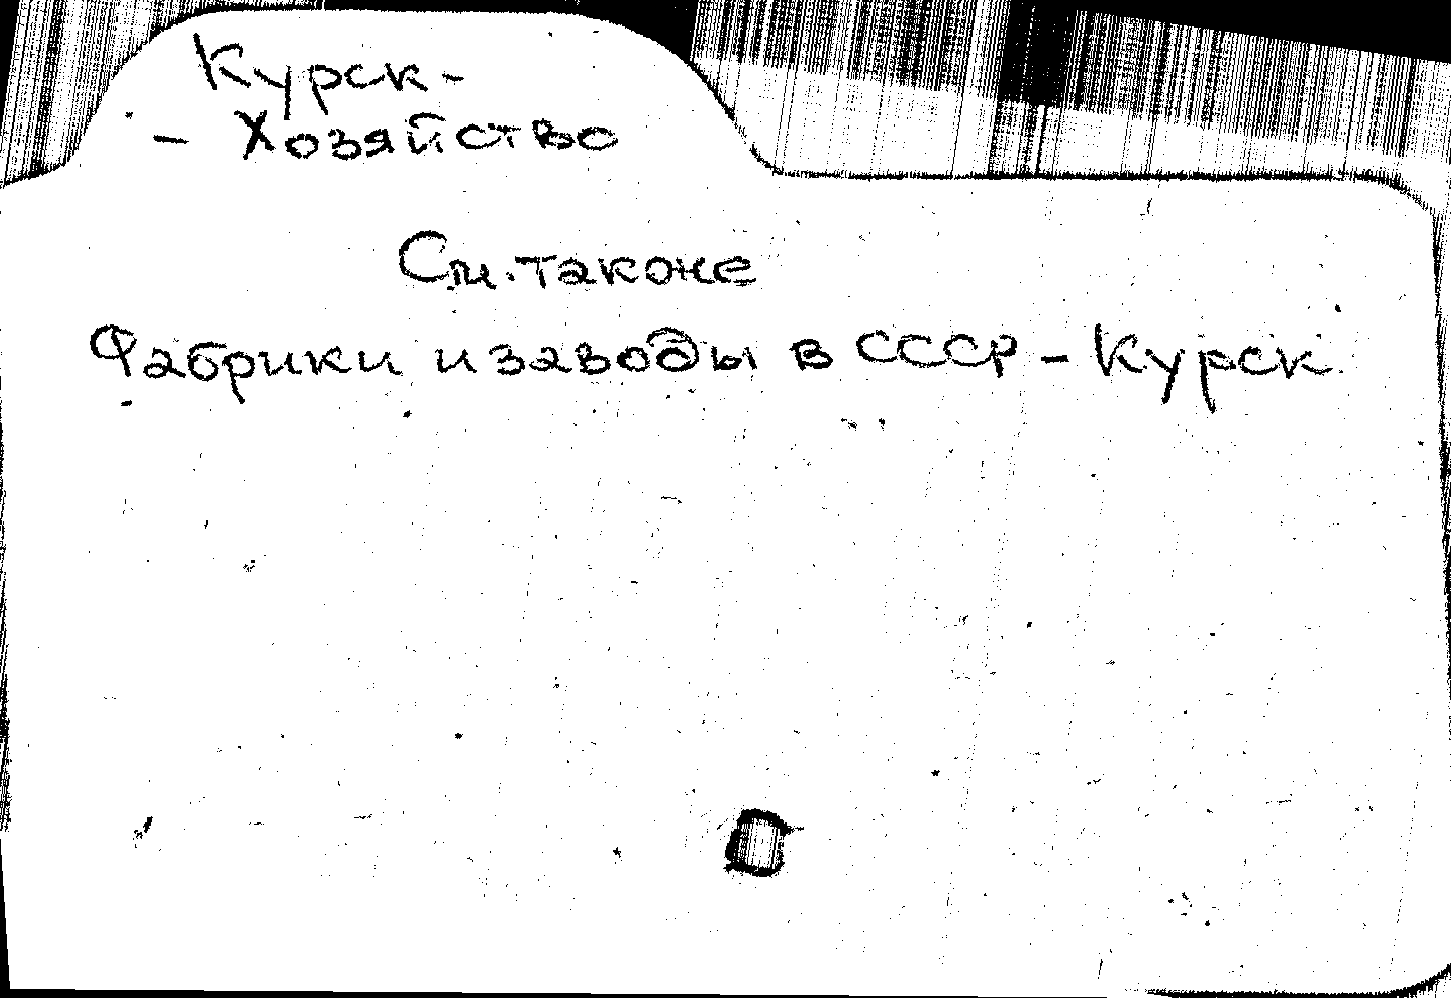 Курск-
- Хозяйство
См. также
Фабрики и заводы в СССР - Курск